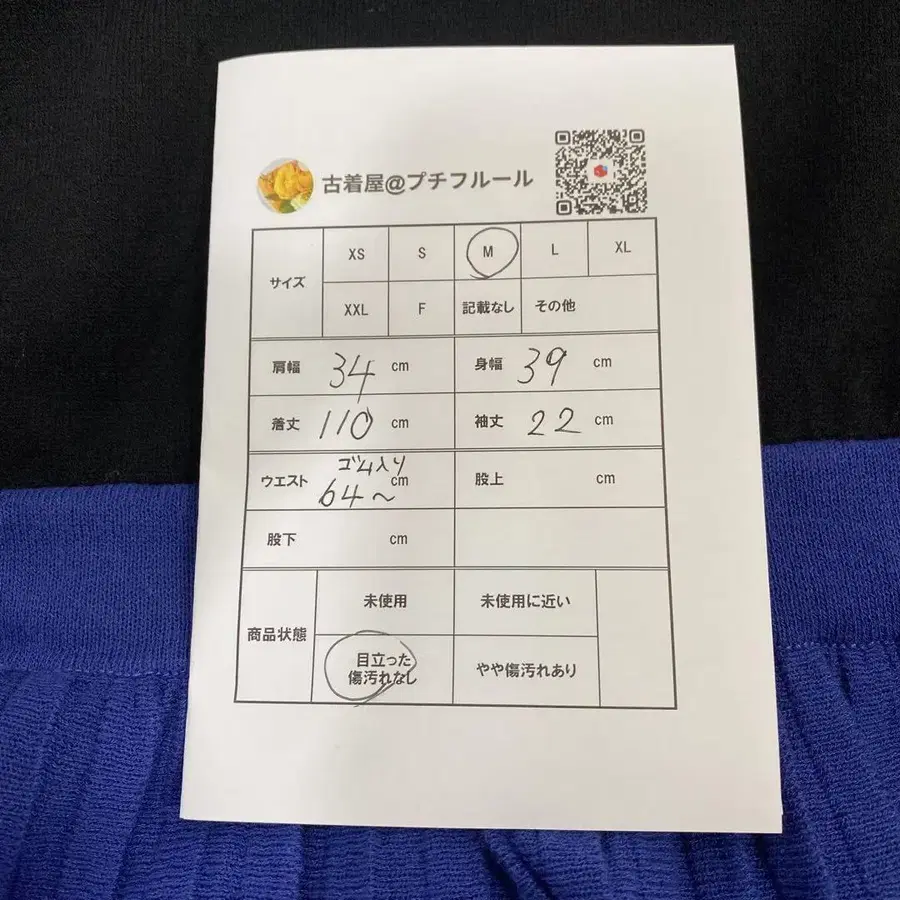 古着屋@プチフルール
サイズ XS S M L XL
XXL F 記載なし その他
肩幅 34 cm 身幅 39 cm
着丈 110 cm 袖丈 22 cm
ゴム入り
ウエスト 64~ cm 股上 cm
股下 cm
商品状態 未使用 未使用に近い
目立った
傷汚れなし やや傷汚れあり